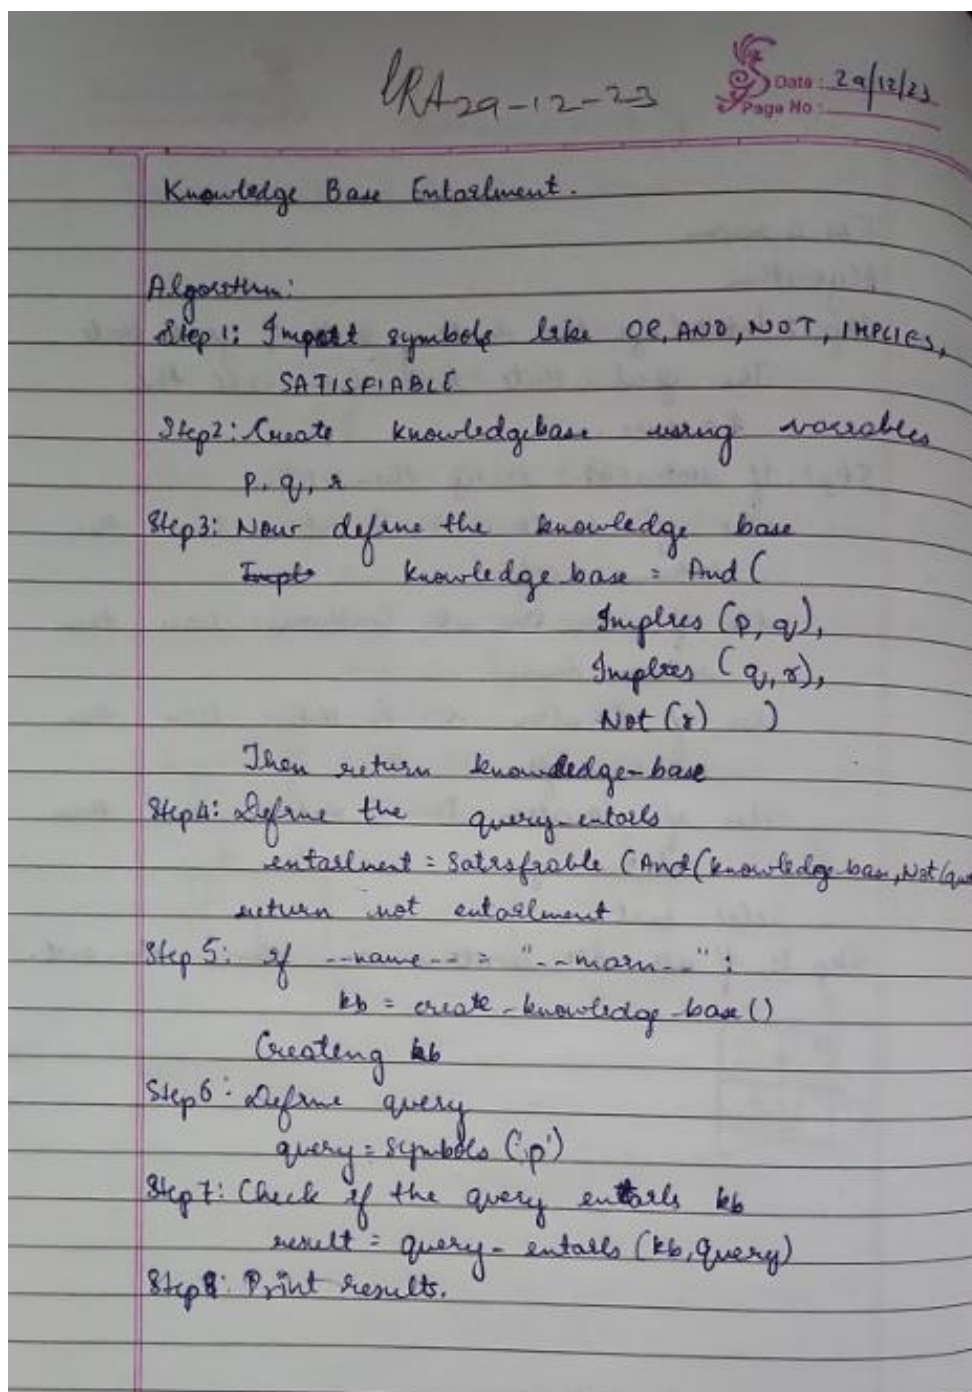 29-12-23
Date: 29/12/23
Page No:
Knowledge Base Entailment.
Algorithm:
Step 1: Import symbols like OR, AND, NOT, IMPLIES,
SATISFIABLE
Step2: Create knowledgebase using variables
p, q, r
Step3: Now define the knowledge base
knowledge_base = And (
Implies (p, q),
Implies (q, r),
Not (r) )
Then return knowledge-base
Step4: Define the query-entails
entailment = Satisfiable (And(knowledge-base, Not(que
return not entailment
Step 5: if --name-- = "--main--":
kb = create-knowledge-base()
Createng kb
Step6: Define query
query = symbols ('p')
Step7: Check if the query entails kb
result = query-entails (kb, query)
Step8: Print results.